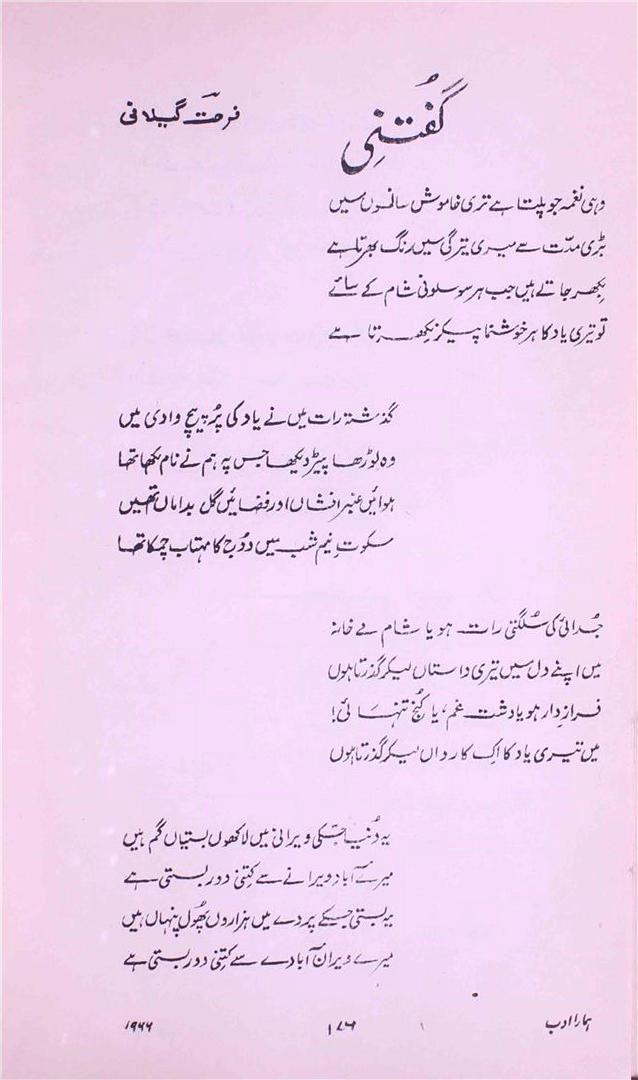 گفُتنی
فرحت گیلانی
وہی نغمہ جو پلتا ہے تری خاموش سانسوں میں
بڑی مدّت سے میری تیرگی میں رنگ بھرتا ہے
بکھر جاتے ہیں جب ہر سو سلونی شام کے سائے
تو تیری یاد کا ہر خوشنما پیکر نکھرتا ہے
گذشتہ رات میں نے یاد کی پُر پیچ وادی میں
وہ بوڑھا پیڑ دیکھا جس پہ ہم نے نام لکھا تھا
ہوائیں عنبر افشاں اور فضائیں گل بداماں تھیں
سکوتِ نیم شب میں دُوج کا مہتاب چمکا تھا
جُدائی کی سُلگتی رات ہو یا شام مے خانہ
میں اپنے دل میں تیری داستاں لیکر گذرتا ہوں
فرازِ دار ہو یا دشت غم، یا کُنج تنہائی!
میں تیری یاد کا اِک کارواں لیکر گذرتا ہوں
یہ دُنیا جسکی ویرانی میں لاکھوں بستیاں گم ہیں
میرے آباد ویرانے سے کِتنی دور بستی ہے
یہ بستی جسکے پردے میں ہزاروں پھُول پنہاں ہیں
میرے ویران آبادے سے کِتنی دور بستی ہے
ہمارا ادب
۱۷۶
۱۹۶۶